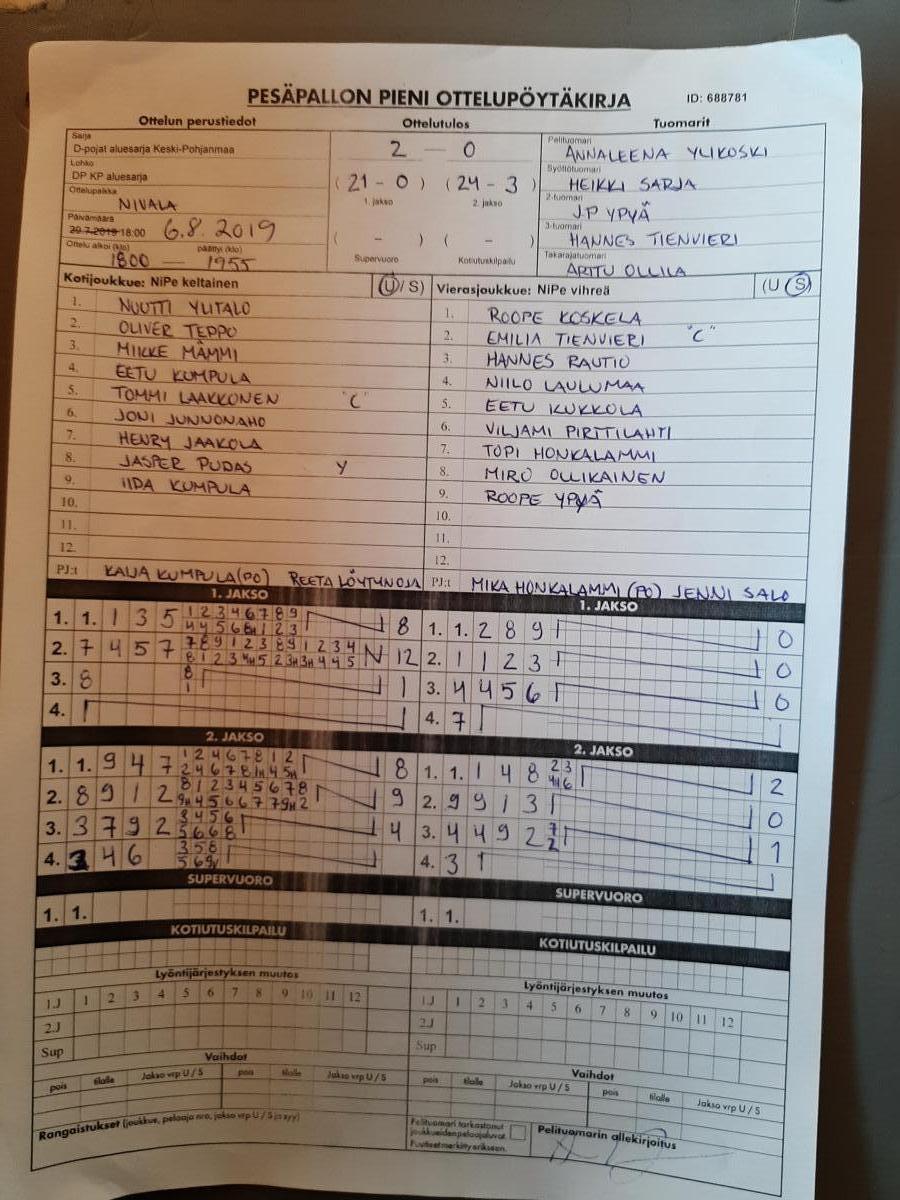 PESÄPALLON PIENI OTTELUPÖYTÄKIRJA ID: 688781
Ottelun perustiedot Ottelutulos Tuomarit
Sarja
D-pojat aluesarja Keski-Pohjanmaa
Lohko
DP KP aluesarja
Ottelupaikka
NIVALA
Päivämäärä
29.7.2019 18:00 6.8.2019
Ottelu alkoi (klo) päättyi (klo)
1800 — 1955
2 — 0
(21 - 0) (24 - 3)
1. jakso 2. jakso
( - ) ( - )
Supervuoro Kotiutuskilpailu
Pelituomari
ANNALEENA YLIKOSKI
Syöttötuomari
HEIKKI SARJA
2-tuomari
J.P YPYÄ
3-tuomari
HANNES TIENVIERI
Takarajatuomari
ARTTU OLLILA
Kotijoukkue: NiPe keltainen (U/ S)
1. NUUTTI YLITALO
2. OLIVER TEPPO
3. MIIKKE MÄMMI
4. EETU KUMPULA
5. TOMMI LAAKKONEN "C"
6. JONI JUNNONAHO
7. HENRY JAAKOLA
8. JASPER PUDAS Y
9. IIDA KUMPULA
10.
11.
12.
PJ:t KAIJA KUMPULA (PO) REETA LÖYTYNOJA
Vierasjoukkue: NiPe vihreä (U / S)
1. ROOPE KOSKELA
2. EMILIA TIENVIERI "C"
3. HANNES RAUTIO
4. NIILO LAULUMAA
5. EETU KUKKOLA
6. VILJAMI PIRTTILAHTI
7. TOPI HONKALAMMI
8. MIRO OLLIKAINEN
9. ROOPE YPYÄ
10.
11.
12.
PJ:t MIKA HONKALAMMI (PO) JENNI SALO
1. JAKSO
1. 1. 1 3 5 8
2. 7 4 5 7 N 12
3. 8 8 1 1
4.
1. JAKSO
1. 1. 2 8 9 0
2. 1 1 2 3 0
3. 4 4 5 6 0
4. 7
2. JAKSO
1. 1. 9 4 7 8
2. 8 9 1 2 9
3. 3 7 9 2 4
4. 3 4 6
2. JAKSO
1. 1. 1 4 8 2
2. 9 9 1 3 0
3. 4 4 9 2 7 2 1
4. 3
SUPERVUORO
1. 1.
SUPERVUORO
1. 1.
KOTIUTUSKILPAILU
KOTIUTUSKILPAILU
Lyöntijärjestyksen muutos
1.J 1 2 3 4 5 6 7 8 9 10 11 12
2.J
Sup
Lyöntijärjestyksen muutos
1.J 1 2 3 4 5 6 7 8 9 10 11 12
2.J
Sup
Vaihdot
pois tilalle Jakso vrp U / S pois tilalle Jakso vrp U / S
Vaihdot
pois tilalle Jakso vrp U / S pois tilalle Jakso vrp U / S
Rangaistukset (joukkue, pelaaja nro, jakso vrp U / S ja syy)
Pelituomari tarkastanut
joukkueiden pelaajaluvat.
Puutteet merkitty erikseen.
Pelituomarin allekirjoitus